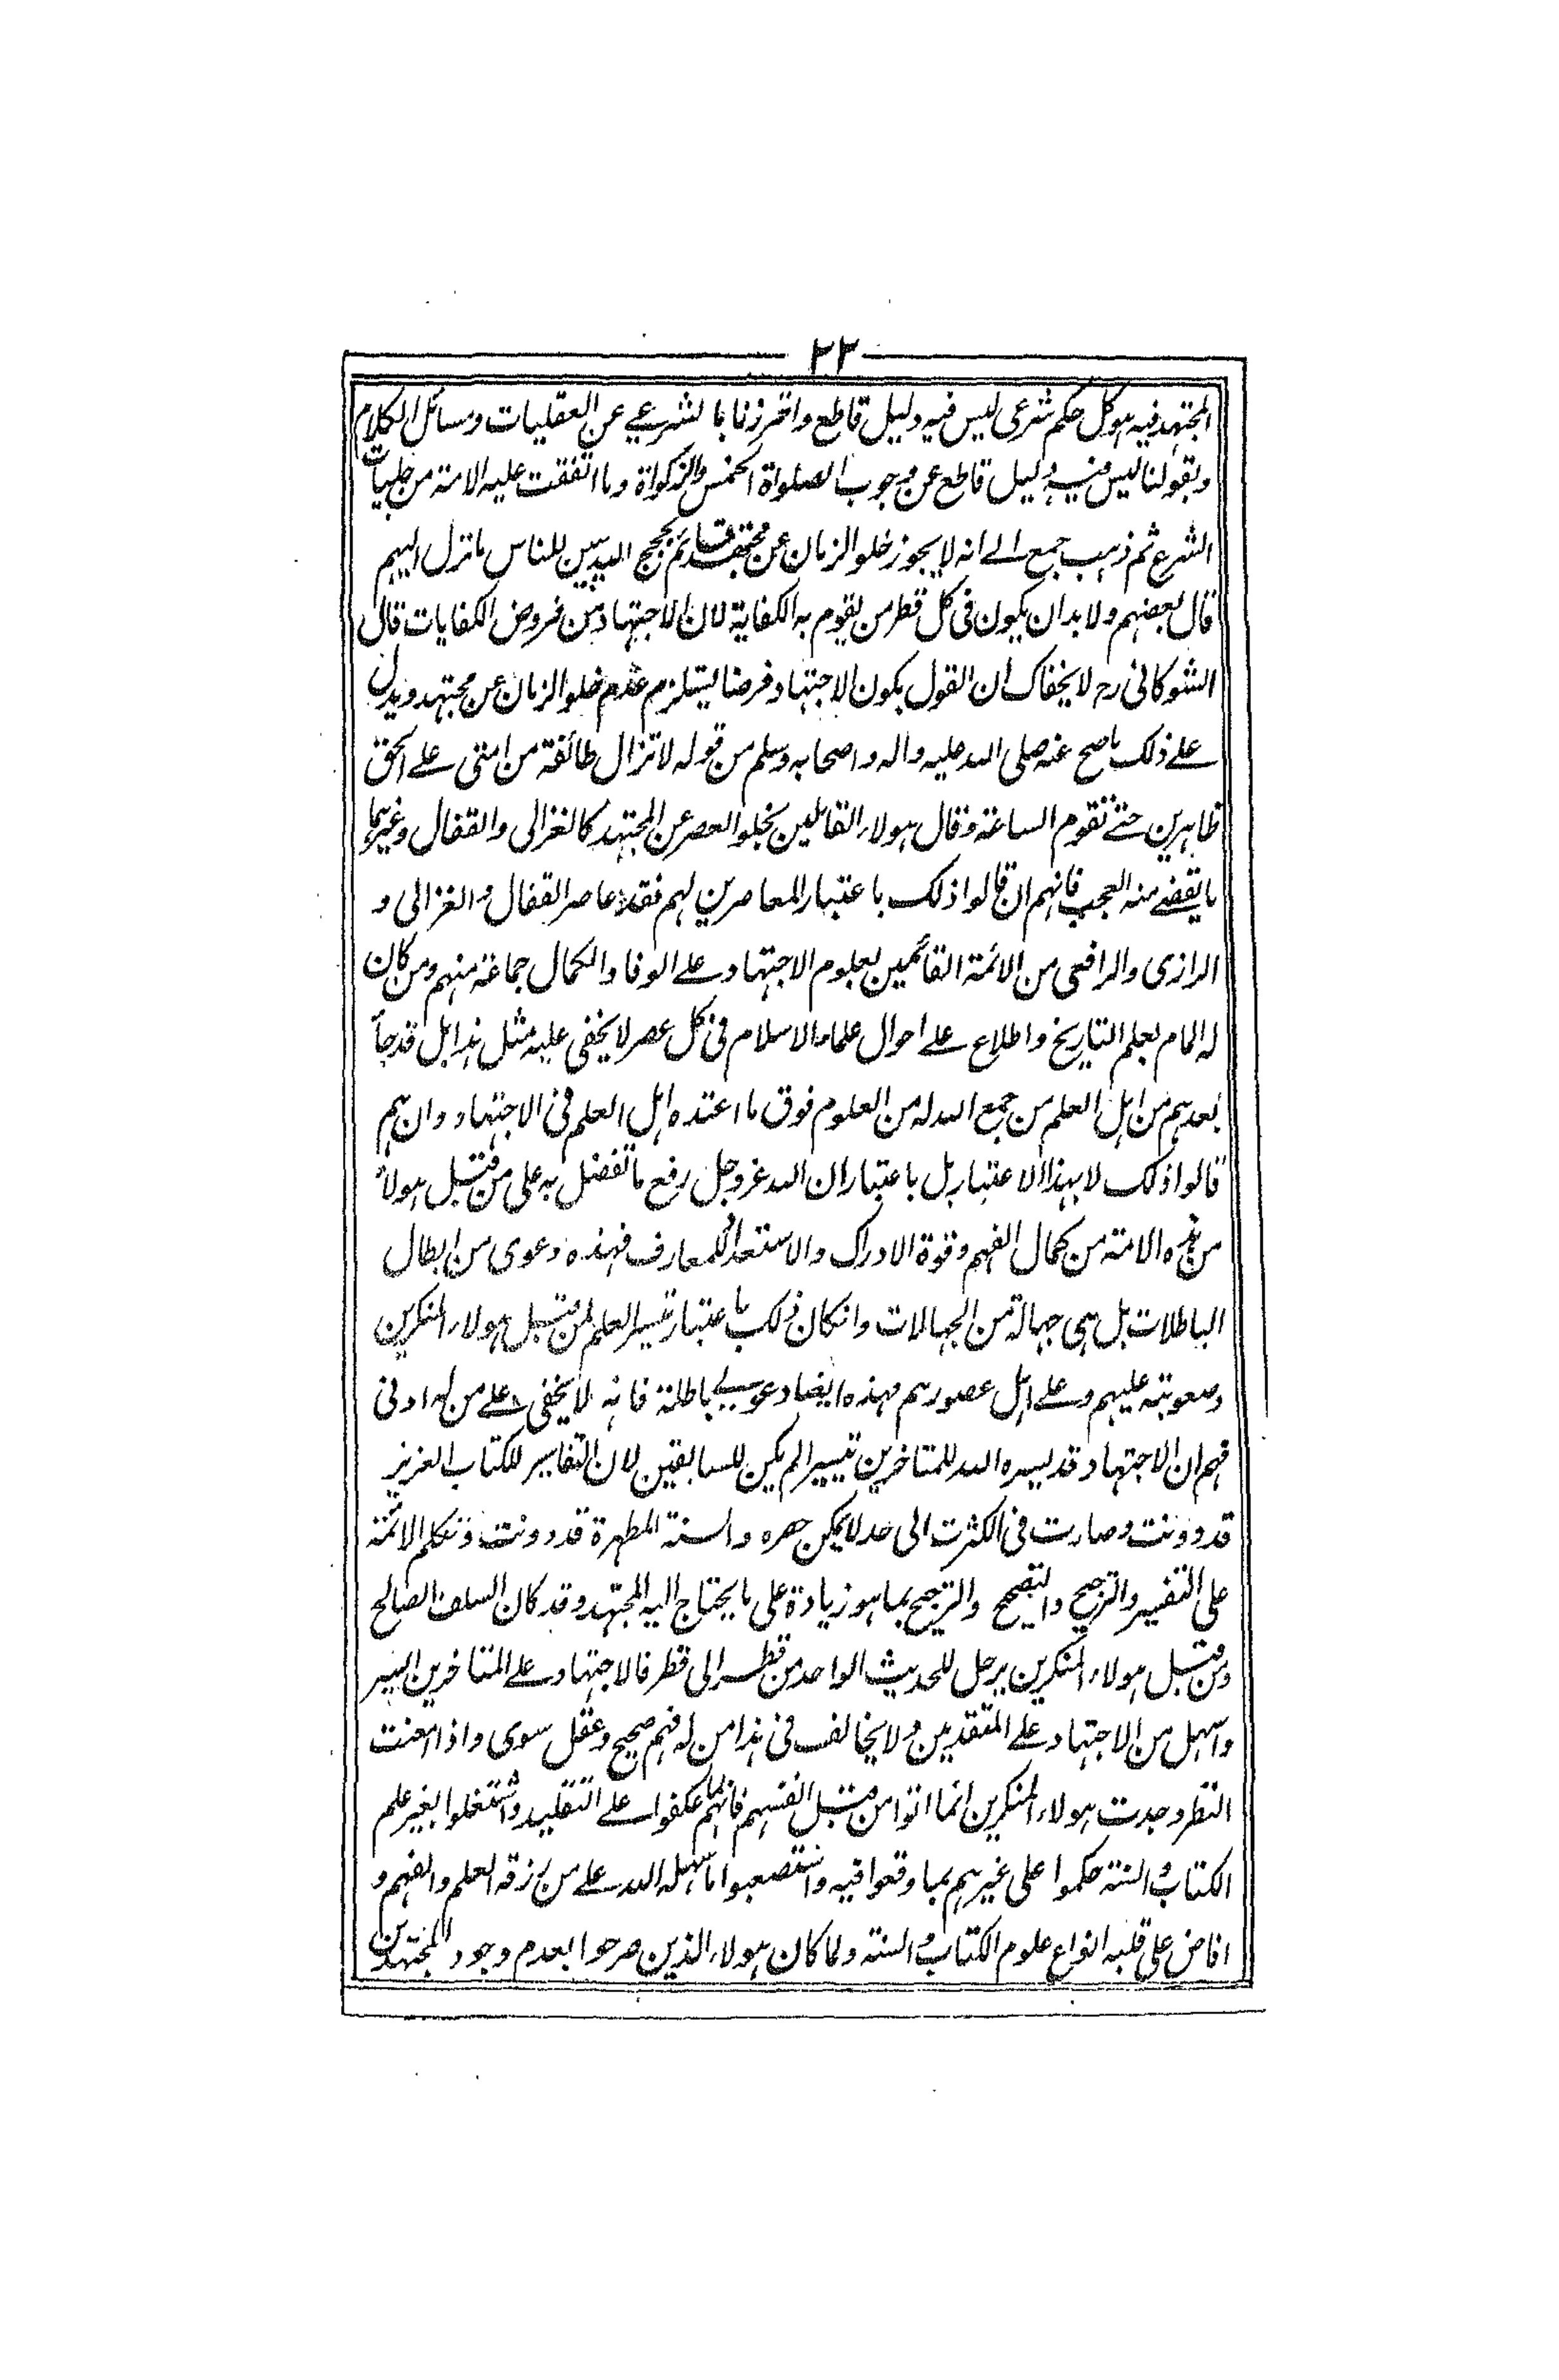 ٢٢
المجتهد فيه هو كل حكم شرعي ليس فيه دليل قاطع واحترزنا بالشرعي عن العقليات ومسائل الكلام
وبقولنا ليس فيه دليل قاطع عن وجوب الصلواة الخمس والزكواة وما اتفقت عليه الامة من جليات
الشرع ثم ذهب جمع الى انه لا يجوز خلو الزمان عن مجتهد قائم بحجج الله يبين للناس ما نزل اليهم
قال بعضهم ولا بد ان يكون فى كل قطر من يقوم به الكفاية لان الاجتهاد من فروض الكفايات قال
الشوكانى رح لا يخفاك ان القول بكون الاجتهاد فرضا يستلزم عدم خلو الزمان عن مجتهد ويدل
على ذلك ما صح عنه صلى الله عليه واله واصحابه وسلم من قوله لا تزال طائفة من امتى على الحق
ظاهرين حتى تقوم الساعة وقال هولاء القائلين بخلو العصر عن المجتهد كالغزالى والقفال وغيرهما
ما يقضى منه العجب فانهم ان قالوا ذلك باعتبار المعاصرين لهم فقد عاصر القفال والغزالى و
الرازى والرافعى من الائمة القائمين بعلوم الاجتهاد على الوفا والكمال جماعة منهم ومن كان
له المام بعلم التاريخ واطلاع على احوال علماء الاسلام فى كل عصر لا يخفى عليه مثل هذا بل قد جاء
بعدهم من اهل العلم من جمع الله له من العلوم فوق ما اعتده اهل العلم فى الاجتهاد وان هم
قالوا ذلك لا بهذا الاعتبار بل باعتبار ان الله عز وجل رفع ما تفضل به على من قبل هولاء
من هذه الامة من كمال الفهم وقوة الادراك والاستعداد للمعارف فهذه دعوى من ابطال
الباطلات بل هى جهالة من الجهالات وانكان ذلك باعتبار تيسير العلم لمن قبل هولاء المنكرين
وصعوبته عليهم وعلى اهل عصورهم فهذه ايضا دعوى باطلة فانه لا يخفى على من له ادنى
فهم ان الاجتهاد قد يسره الله للمتاخرين تيسيرا لم يكن للسابقين لان التفاسير للكتاب العزيز
قد دونت وصارت فى الكثرت الى حد لا يمكن حصره والسنة المطهرة قد دونت وتكلم الائمة
على التفسير والترجيح والتصحيح والترجيح بما هو زيادة على ما يحتاج اليه المجتهد وقد كان السلف الصالح
ومن قبل هولاء المنكرين يرحل للحديث الواحد من قطر الى قطر فالاجتهاد على المتاخرين ايسر
واسهل من الاجتهاد على المتقدمين ولا يخالف فى هذا من له فهم صحيح وعقل سوى واذا امعنت
النظر وجدت هولاء المنكرين انما اتوا من قبل انفسهم فانهم لما عكفوا على التقليد واشتغلوا بغير علم
الكتاب والسنة حكموا على غيرهم بما وقعوا فيه واستصعبوا ما سهله الله على من رزقه العلم والفهم و
افاض على قلبه انواع علوم الكتاب والسنة ولما كان هولاء الذين صرحوا بعدم وجود المجتهدين